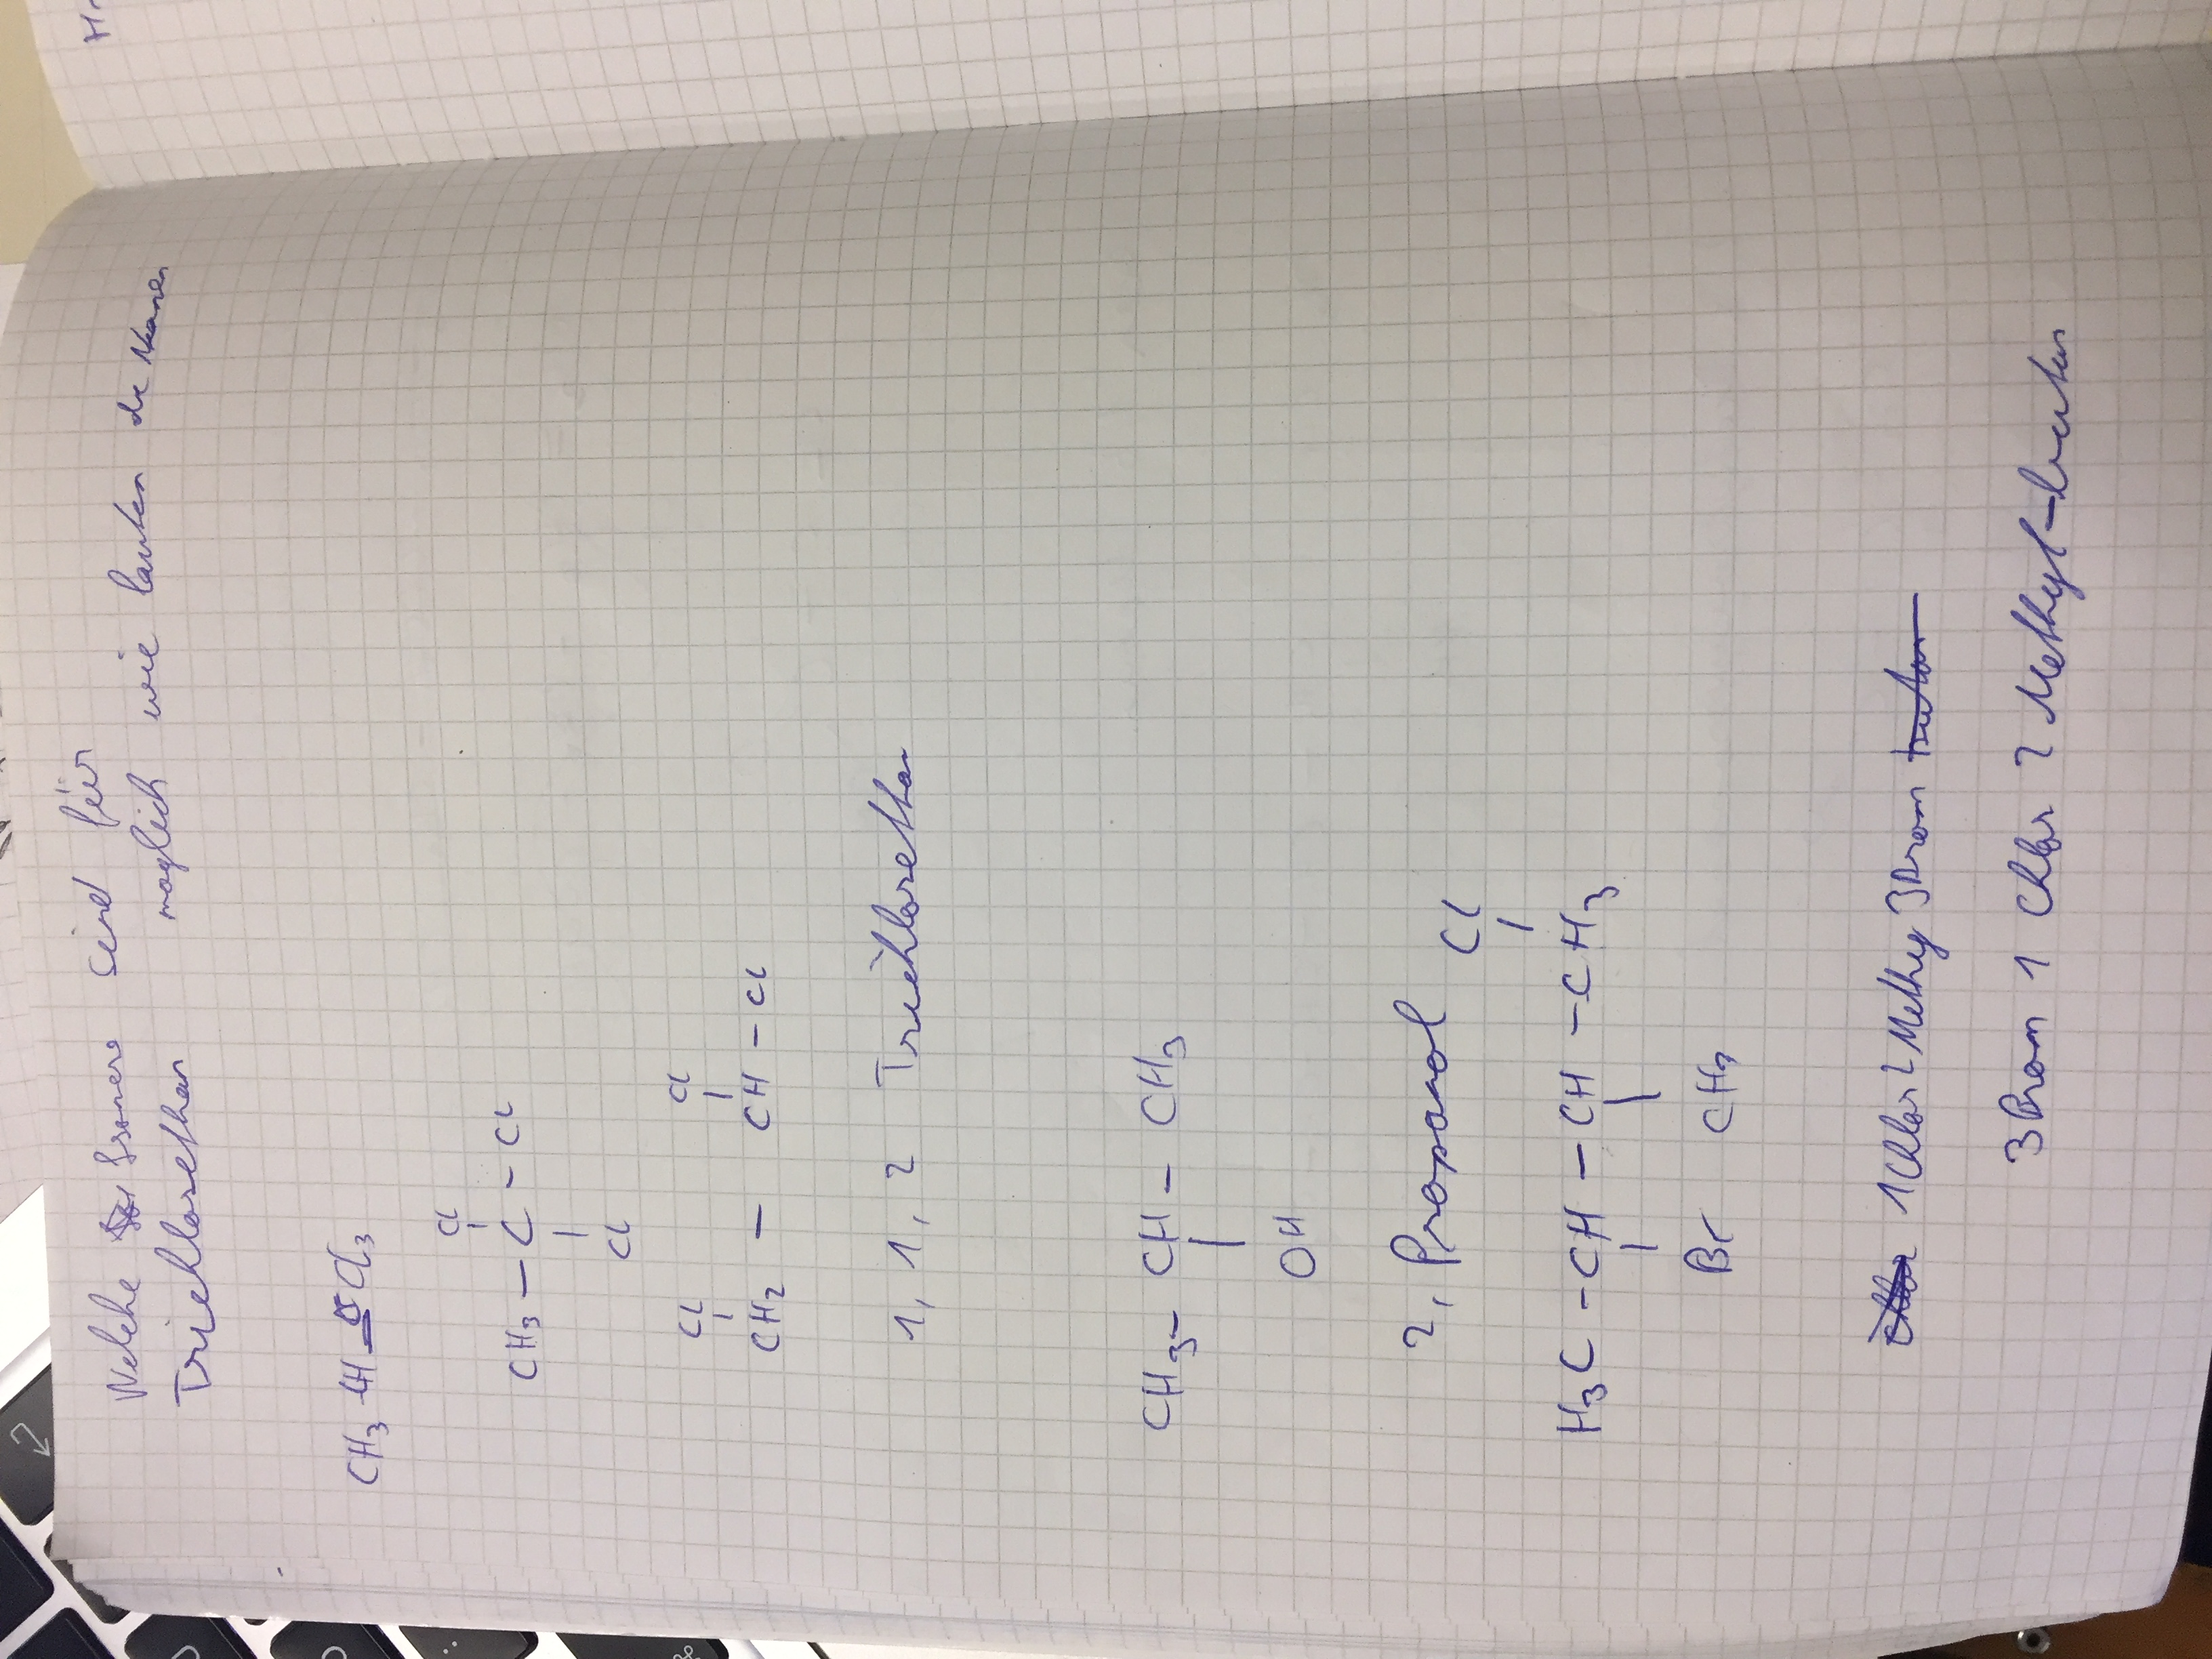 Welche Isomere sind für
Trichlorethan möglich wie lauten die Namen
CH3 Cl3
Cl
|
CH3 — C - Cl
|
Cl
Cl Cl
| |
CH2 — CH - Cl
1, 1, 2 Trichlorethan
CH3 - CH - CH3
|
OH
2, Propanol
Cl
|
H3C - CH - CH - CH3
| |
Br CH3
Chlor 1Chlor 2 Methy 3Brom butan
3Brom 1 Chlor 2 Methyl-butan